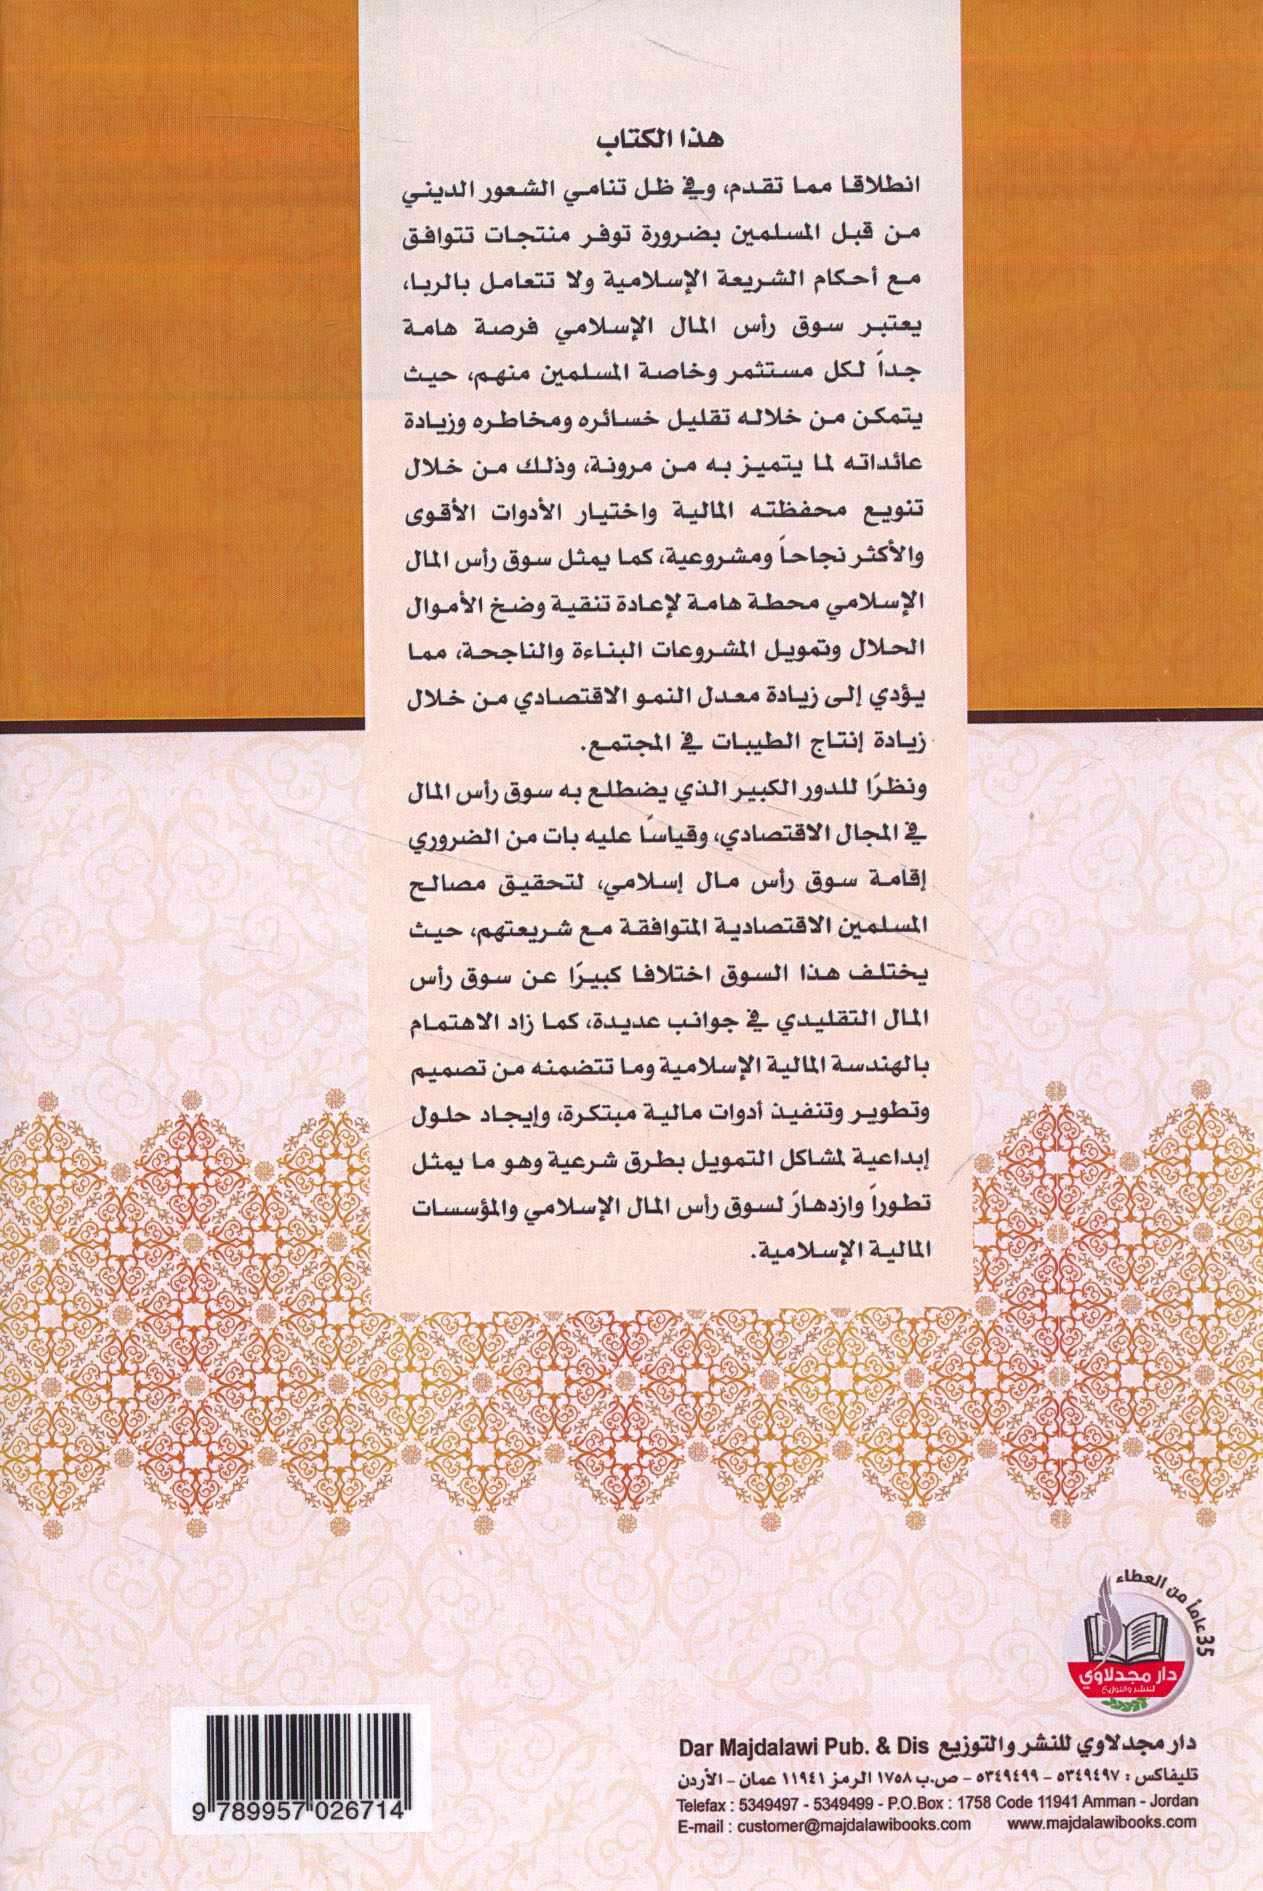 هذا الكتاب
انطلاقا مما تقدم، وفي ظل تنامي الشعور الديني
من قبل المسلمين بضرورة توفر منتجات تتوافق
مع أحكام الشريعة الإسلامية ولا تتعامل بالربا،
يعتبر سوق رأس المال الإسلامي فرصة هامة
جداً لكل مستثمر وخاصة المسلمين منهم، حيث
يتمكن من خلاله تقليل خسائره ومخاطره وزيادة
عائداته لما يتميز به من مرونة، وذلك من خلال
تنويع محفظته المالية واختيار الأدوات الأقوى
والأكثر نجاحاً ومشروعية، كما يمثل سوق رأس المال
الإسلامي محطة هامة لإعادة تنقية وضخ الأموال
الحلال وتمويل المشروعات البناءة والناجحة، مما
يؤدي إلى زيادة معدل النمو الاقتصادي من خلال
زيادة إنتاج الطيبات في المجتمع.
ونظرًا للدور الكبير الذي يضطلع به سوق رأس المال
في المجال الاقتصادي، وقياسًا عليه بات من الضروري
إقامة سوق رأس مال إسلامي، لتحقيق مصالح
المسلمين الاقتصادية المتوافقة مع شريعتهم، حيث
يختلف هذا السوق اختلافا كبيرًا عن سوق رأس
المال التقليدي في جوانب عديدة، كما زاد الاهتمام
بالهندسة المالية الإسلامية وما تتضمنه من تصميم
وتطوير وتنفيذ أدوات مالية مبتكرة، وإيجاد حلول
إبداعية لمشاكل التمويل بطرق شرعية وهو ما يمثل
تطوراً وازدهارً لسوق رأس المال الإسلامي والمؤسسات
المالية الإسلامية.
35 عاماً من العطاء
دار مجدلاوي
للنشر والتوزيع
دار مجدلاوي للنشر والتوزيع Dar Majdalawi Pub. & Dis
تليفاكس : ٥٣٤٩٤٩٧ – ٥٣٤٩٤٩٩ – ص.ب ١٧٥٨ الرمز ١١٩٤١ عمان – الأردن
Telefax : 5349497 - 5349499 - P.O.Box : 1758 Code 11941 Amman - Jordan
E-mail : customer@majdalawibooks.com www.majdalawibooks.com
9 789957 026714